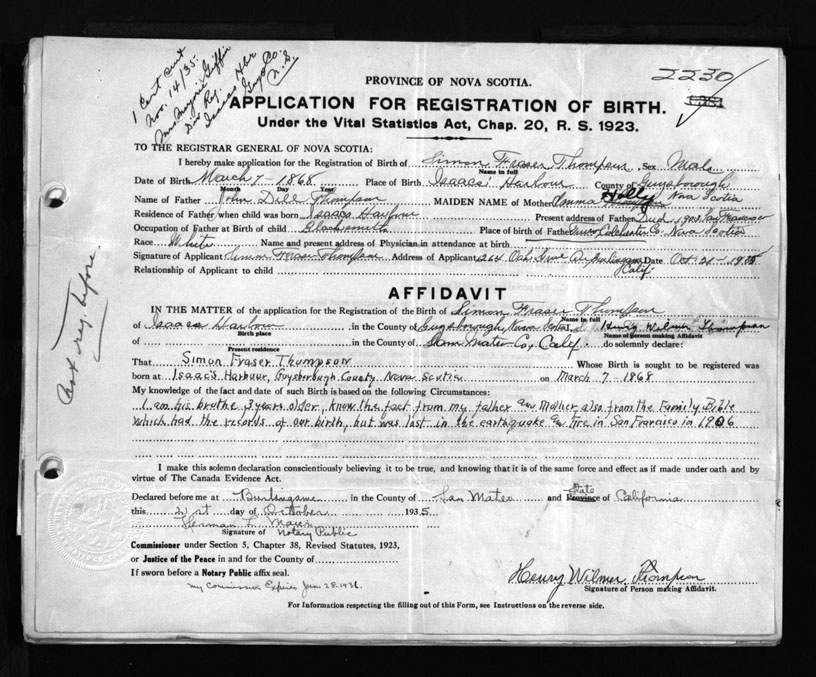 1 Cert sent
Nov. 14/35.
Mrs. Griffin
Div Reg.
Isaacs Hbr
Guys Co.
N.S.
2230
PROVINCE OF NOVA SCOTIA.
APPLICATION FOR REGISTRATION OF BIRTH.
Under the Vital Statistics Act, Chap. 20, R. S. 1923.
TO THE REGISTRAR GENERAL OF NOVA SCOTIA:
I hereby make application for the Registration of Birth of Simon Fraser Thompson, Sex Male
Name in full
Date of Birth March 7 - 1868 Place of Birth Isaacs Harbour County of Guysborough
Month Day Year Nova Scotia
Name of Father John Dill Thompson MAIDEN NAME of Mother Emma
Residence of Father when child was born Isaacs Harbour Present address of Father Died 1903 San Francisco
Occupation of Father at Birth of child Place of birth of Father Truro Colchester Co. Nova Scotia
Race White Name and present address of Physician in attendance at birth
Signature of Applicant Simon Fraser Thompson Address of Applicant 264 Oak Grove Av, Burlingame Date Oct 21 - 1935
Calif
Relationship of Applicant to child
Cert reg. before
AFFIDAVIT
IN THE MATTER of the application for the Registration of the Birth of Simon Fraser Thompson
Name in full
of Isaacs Harbour in the County of Guysborough, Nova Scotia, I, Henry Wilmer Thompson
Birth place Name of person making Affidavit
of in the County of San Mateo Co, Calif. do solemnly declare:
Present residence
That Simon Fraser Thompson Whose Birth is sought to be registered was
born at Isaac's Harbour, Guysborough County, Nova Scotia on March 7 - 1868
My knowledge of the fact and date of such Birth is based on the following Circumstances:
I am his brothe 3 years older, know the fact from my father and Mother also from the Family Bible
which had the records of our birth, but was lost in the earthquake and fire in San Francisco in 1906
I make this solemn declaration conscientiously believing it to be true, and knowing that it is of the same force and effect as if made under oath and by
virtue of The Canada Evidence Act.
Declared before me at Burlingame in the County of San Mateo and Province of California
State
this 21st day of October 1935
Herman F.
Signature of Notary Public
Commissioner under Section 5, Chapter 38, Revised Statutes, 1923,
or Justice of the Peace in and for the County of
If sworn before a Notary Public affix seal.
My Commission Expires Jan 28 1936
Henry Wilmer Thompson
Signature of Person making Affidavit.
For Information respecting the filling out of this Form, see Instructions on the reverse side.